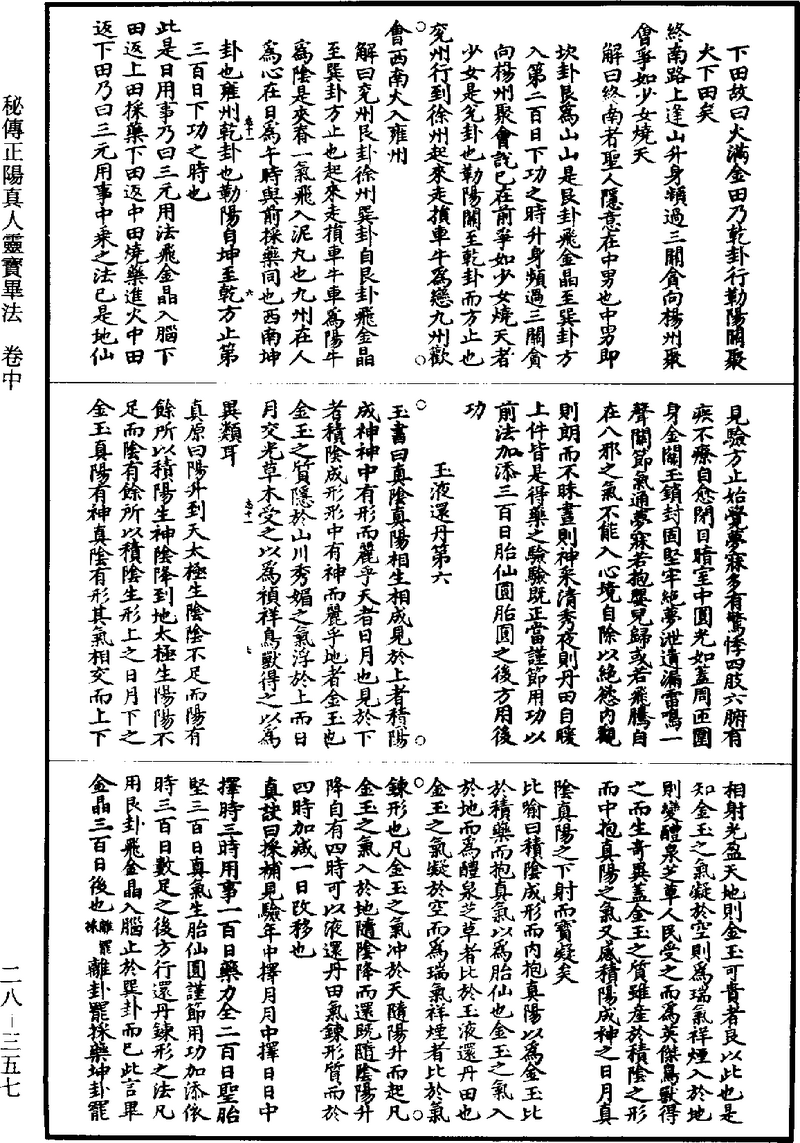 下田故曰火滿金田乃乾卦行勒陽關聚
火下田矣
終南路上逢山升身頻過三關貪向楊州聚
會爭如少女燒天
解曰終南者聖人隱意在中男也中男即
坎卦艮為山山是艮卦飛金晶至巽卦方
入第二百日下功之時升身頻過三關貪
向楊州聚會說已在前爭如少女燒天者
少女是兊卦也勒陽關至乾卦而方止也
兖州行到徐州起來走損車牛為戀九州歡
會西南火入雍州
解曰兖州艮卦徐州巽卦自艮卦飛金晶
至巽卦方止也起來走損車牛車為陽牛
為陰是夾脊一氣飛入泥丸也九州在人
為心在日為午時與前採藥同也西南坤
卦也雍州乾卦也勒陽自坤至乾方止第
三百日下功之時也
此是日用事乃曰三元用法飛金晶入腦下
田返上田採藥下田返中田燒藥進火中田
返下田乃曰三元用事中乘之法已是地仙
見驗方止始覺夢寐多有驚悸四肢六腑有
疾不療自愈閉目暗室中圓光如蓋周匝圍
身金關玉鎖封固堅牢絕夢泄遺漏雷鳴一
聲關節氣通夢寐若抱嬰兒歸或若飛騰自
在八邪之氣不能入心境自除以絕慾內觀
則朗而不昧晝則神采清秀夜則丹田自暖
上件皆是得藥之驗驗既正當謹節用功以
前法加添三百日胎仙圓胎圓之後方用後
功
玉液還丹第六
玉書曰真陰真陽相生相成見於上者積陽
成神神中有形而麗乎天者日月也見於下
者積陰成形形中有神而麗乎地者金玉也
金玉之質隱於山川秀媚之氣浮於上而日
月交光草木受之以為禎祥鳥獸得之以為
異類耳
真原曰陽升到天太極生陰陰不足而陽有
餘所以積陽生神陰降到地太極生陽陽不
足而陰有餘所以積陰生形上之日月下之
金玉真陽有神真陰有形其氣相交而上下
相射光盈天地則金玉可貴者良以此也是
知金玉之氣凝於空則為瑞氣祥煙入於地
則變醴泉芝草人民受之而為英傑鳥獸得
之而生奇異蓋金玉之質雖産於積陰之形
而中抱真陽之氣又感積陽成神之日月真
陰真陽之下射而寶凝矣
比喻曰積陰成形而內抱真陽以為金玉比
於積藥而抱真氣以為胎仙也金玉之氣入
於地而為醴泉芝草者比於玉液還丹田也
金玉之氣凝於空而為瑞氣祥煙者比於氣
鍊形也凡金玉之氣冲於天隨陽升而起凡
金玉之氣入於地隨陰降而還既隨陰陽升
降自有四時可以液還丹田氣鍊形質而於
四時加減一日改移也
真訣曰採補見驗年中擇月月中擇日日中
擇時三時用事一百日藥力全二百日聖胎
堅三百日真氣生胎仙圓謹節用功加添依
時三百日數足之後方行還丹鍊形之法凡
用艮卦飛金晶入腦止於巽卦而已此言畢
金晶三百日後也離卦罷採藥坤卦罷
秘傳正陽真人靈寶畢法　卷中
二八－三五七